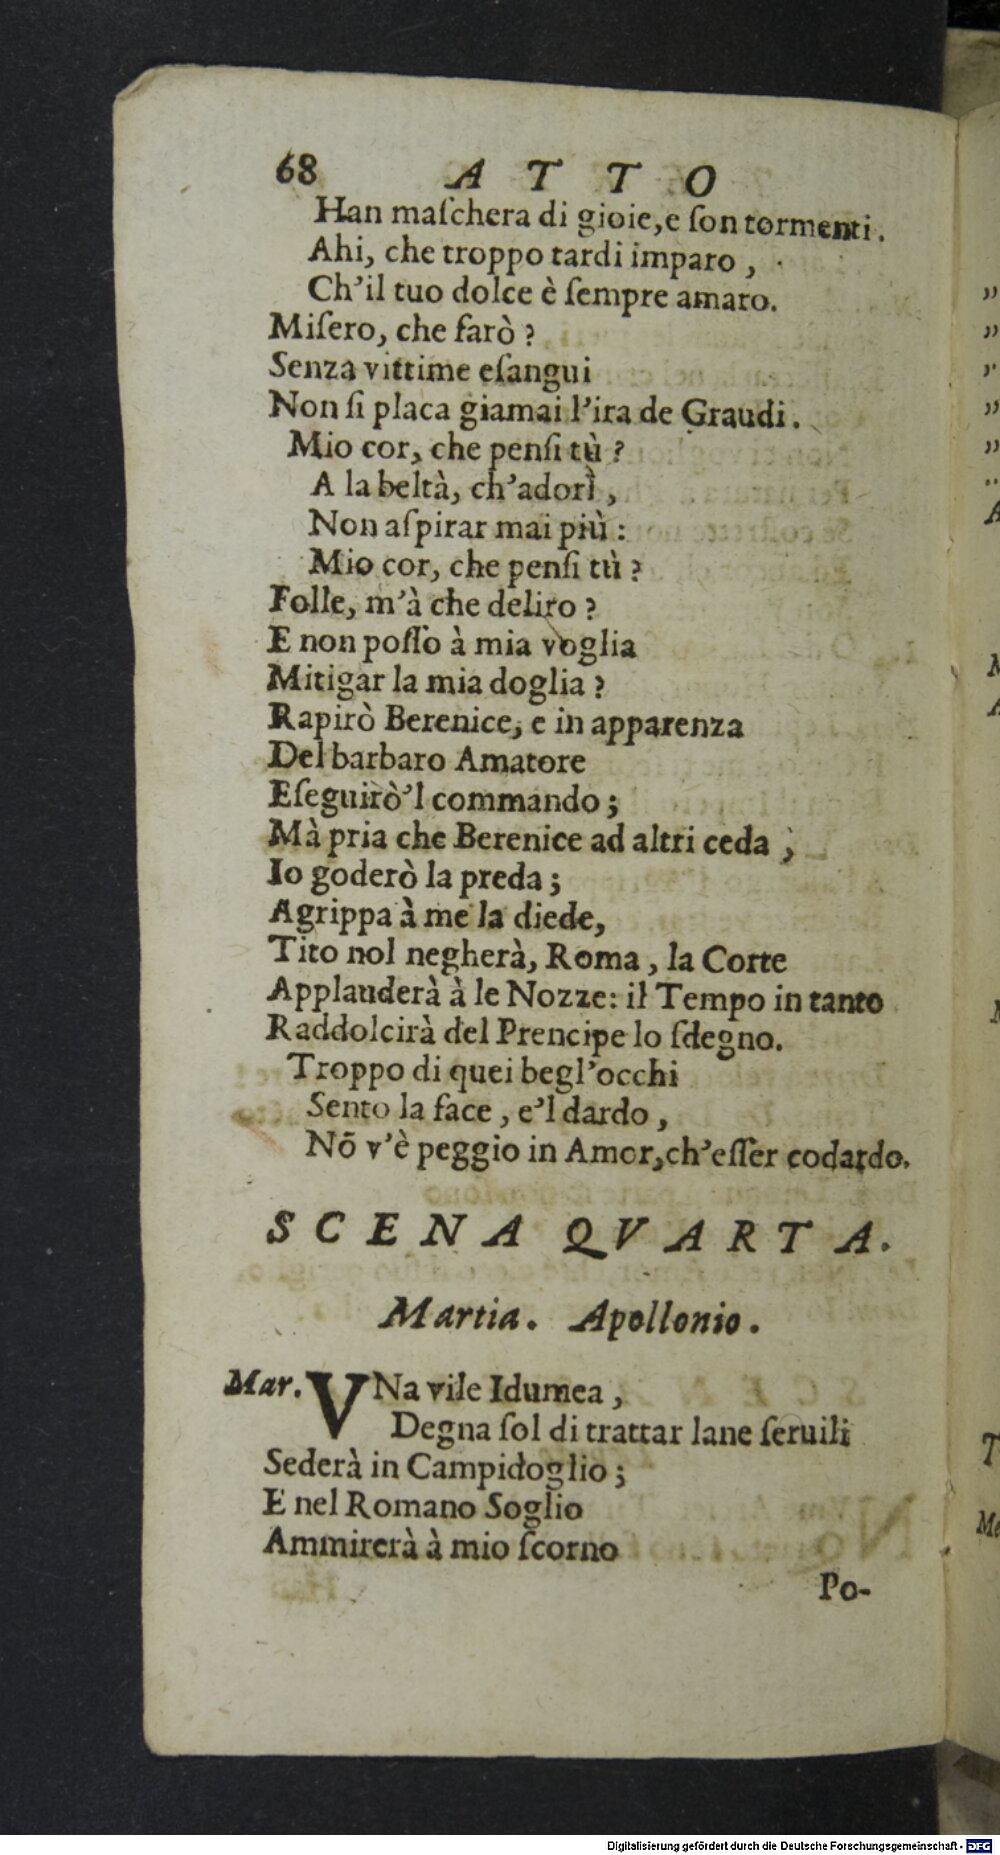 68 ATTO
Han maſchera di gioie,e ſon tormenti.
Ahi, che troppo tardi imparo ,
Ch'il tuo dolce è ſempre amaro.
Miſero, che farò ?
Senza vittime eſangui
Non ſi placa giamai l'ira de Graudi.
Mio cor, che penſi tù ?
A la beltà, ch'adorì ,
Non aſpirar mai più :
Mio cor, che penſi tù ?
Folle, m'à che deliro ?
E non poſſo à mia voglia
Mitigar la mia doglia ?
Rapirò Berenice, e in apparenza
Del barbaro Amatore
Eſeguirò'l commando ;
Mà pria che Berenice ad altri ceda ,
Io goderò la preda ;
Agrippa à me la diede,
Tito nol negherà, Roma , la Corte
Applauderà à le Nozze: il Tempo in tanto
Raddolcirà del Prencipe lo ſdegno.
Troppo di quei begl'occhi
Sento la face , e'l dardo ,
Nō v'è peggio in Amor,ch'eſſer codardo.
SCENA QVARTA.
Martia. Apollonio.
Mar. VNa vile Idumea ,
Degna ſol di trattar lane ſeruili
Sederà in Campidoglio ;
E nel Romano Soglio
Ammirerà à mio ſcorno
Po-
Digitalisierung gefördert durch die Deutsche Forschungsgemeinschaft - DFG